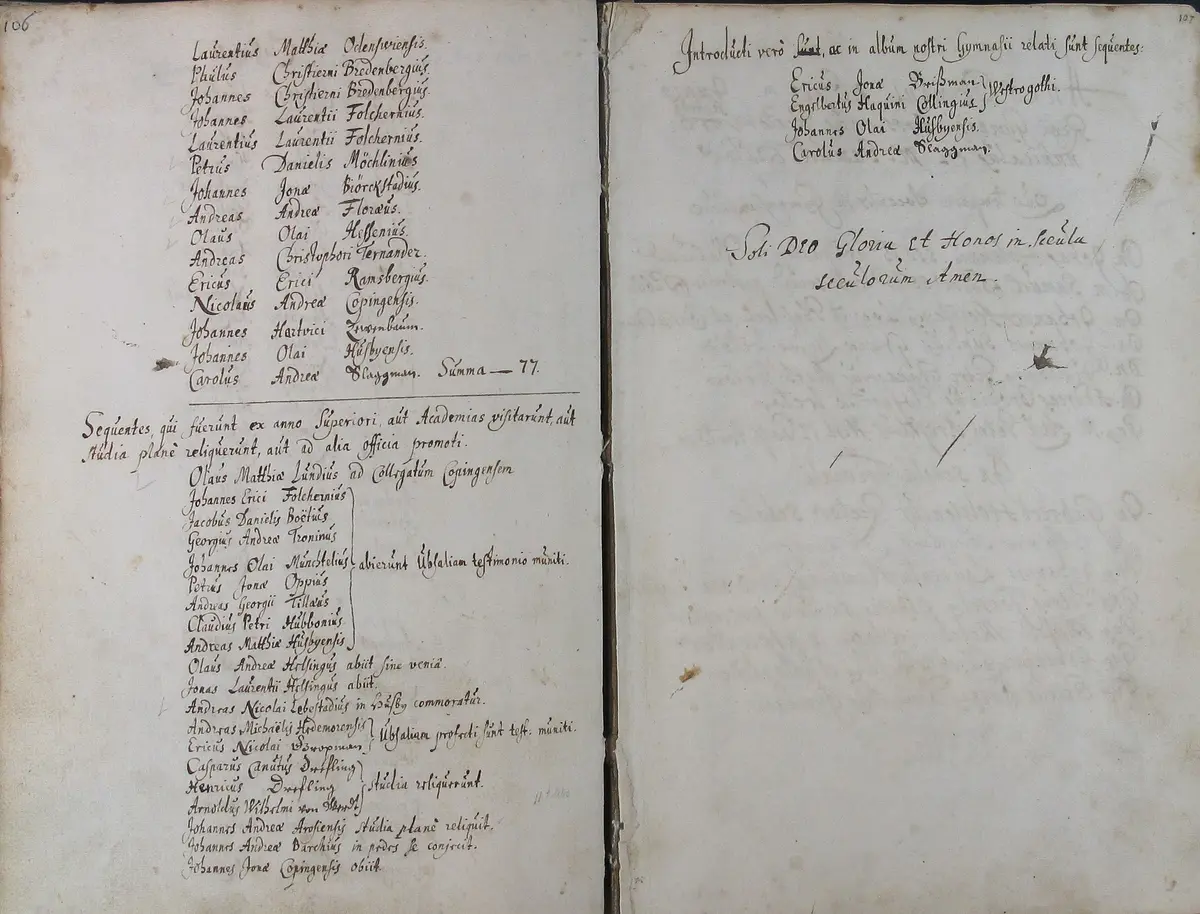 106
Laurentius Matthiæ Odenswiensis.
Phulus Christierni Bredenbergius.
Johannes Christierni Bredenbergius.
Johannes Laurentii Folchernius.
Laurentius Laurentii Folchernius.
Petrus Danielis Möchlinius
Johannes Jonæ Biörckstadius.
Andreas Andreæ Floræus.
Olaus Olai Hessenius.
Andreas Christophori Ternander.
Ericus Erici Ramsbergius.
Nicolaus Andreæ Copingensis.
Johannes Hartvici
Johannes Olai Husbyensis.
Carolus Andreæ Slaggman. Summa — 77.
Sequentes, qui fuerunt ex anno Superiori, aut Academias visitarunt, aut
studia planè reliquerunt, aut ad alia officia promoti.
Olaus Matthiæ Lundius ad Collegatum Copingensem
Johannes Erici Folchernius
Jacobus Danielis Boëtius
Georgius Andreæ Troninus
Johannes Olai Munchtelius abierunt Ubsaliam testimonio muniti.
Petrus Jonæ Oppius
Andreas Georgii Tillæus
Claudius Petri Hubbonius
Andreas Matthiæ Husbyensis
Olaus Andreæ Helsingus abiit sine veniâ.
Jonas Laurentii Helsingus abiit.
Andreas Nicolai Lebestadius in Husby commoratur.
Andreas Michaëlis Hedemorensis
Ericus Nicolai Ubsaliam profecti sunt test. muniti.
Casparus Canutus Drefling
Henricus Drefling studia reliquerunt.
Arnoldus Wilhelmi von
Johannes Andreæ Arosiensis studia planè reliquit.
Johannes Andreæ Barchius in pedes se conjecit.
Johannes Jonæ Copingensis obiit.
107
Introducti verò sunt, ac in album nostri Gymnasii relati sunt sequentes:
Ericus Jonæ Brißman
Engelbertus Haquini Collingius Westrogothi.
Johannes Olai Husbyensis.
Carolus Andreæ Slaggman.
Soli DEO Gloria et Honos in secula
seculorum Amen.